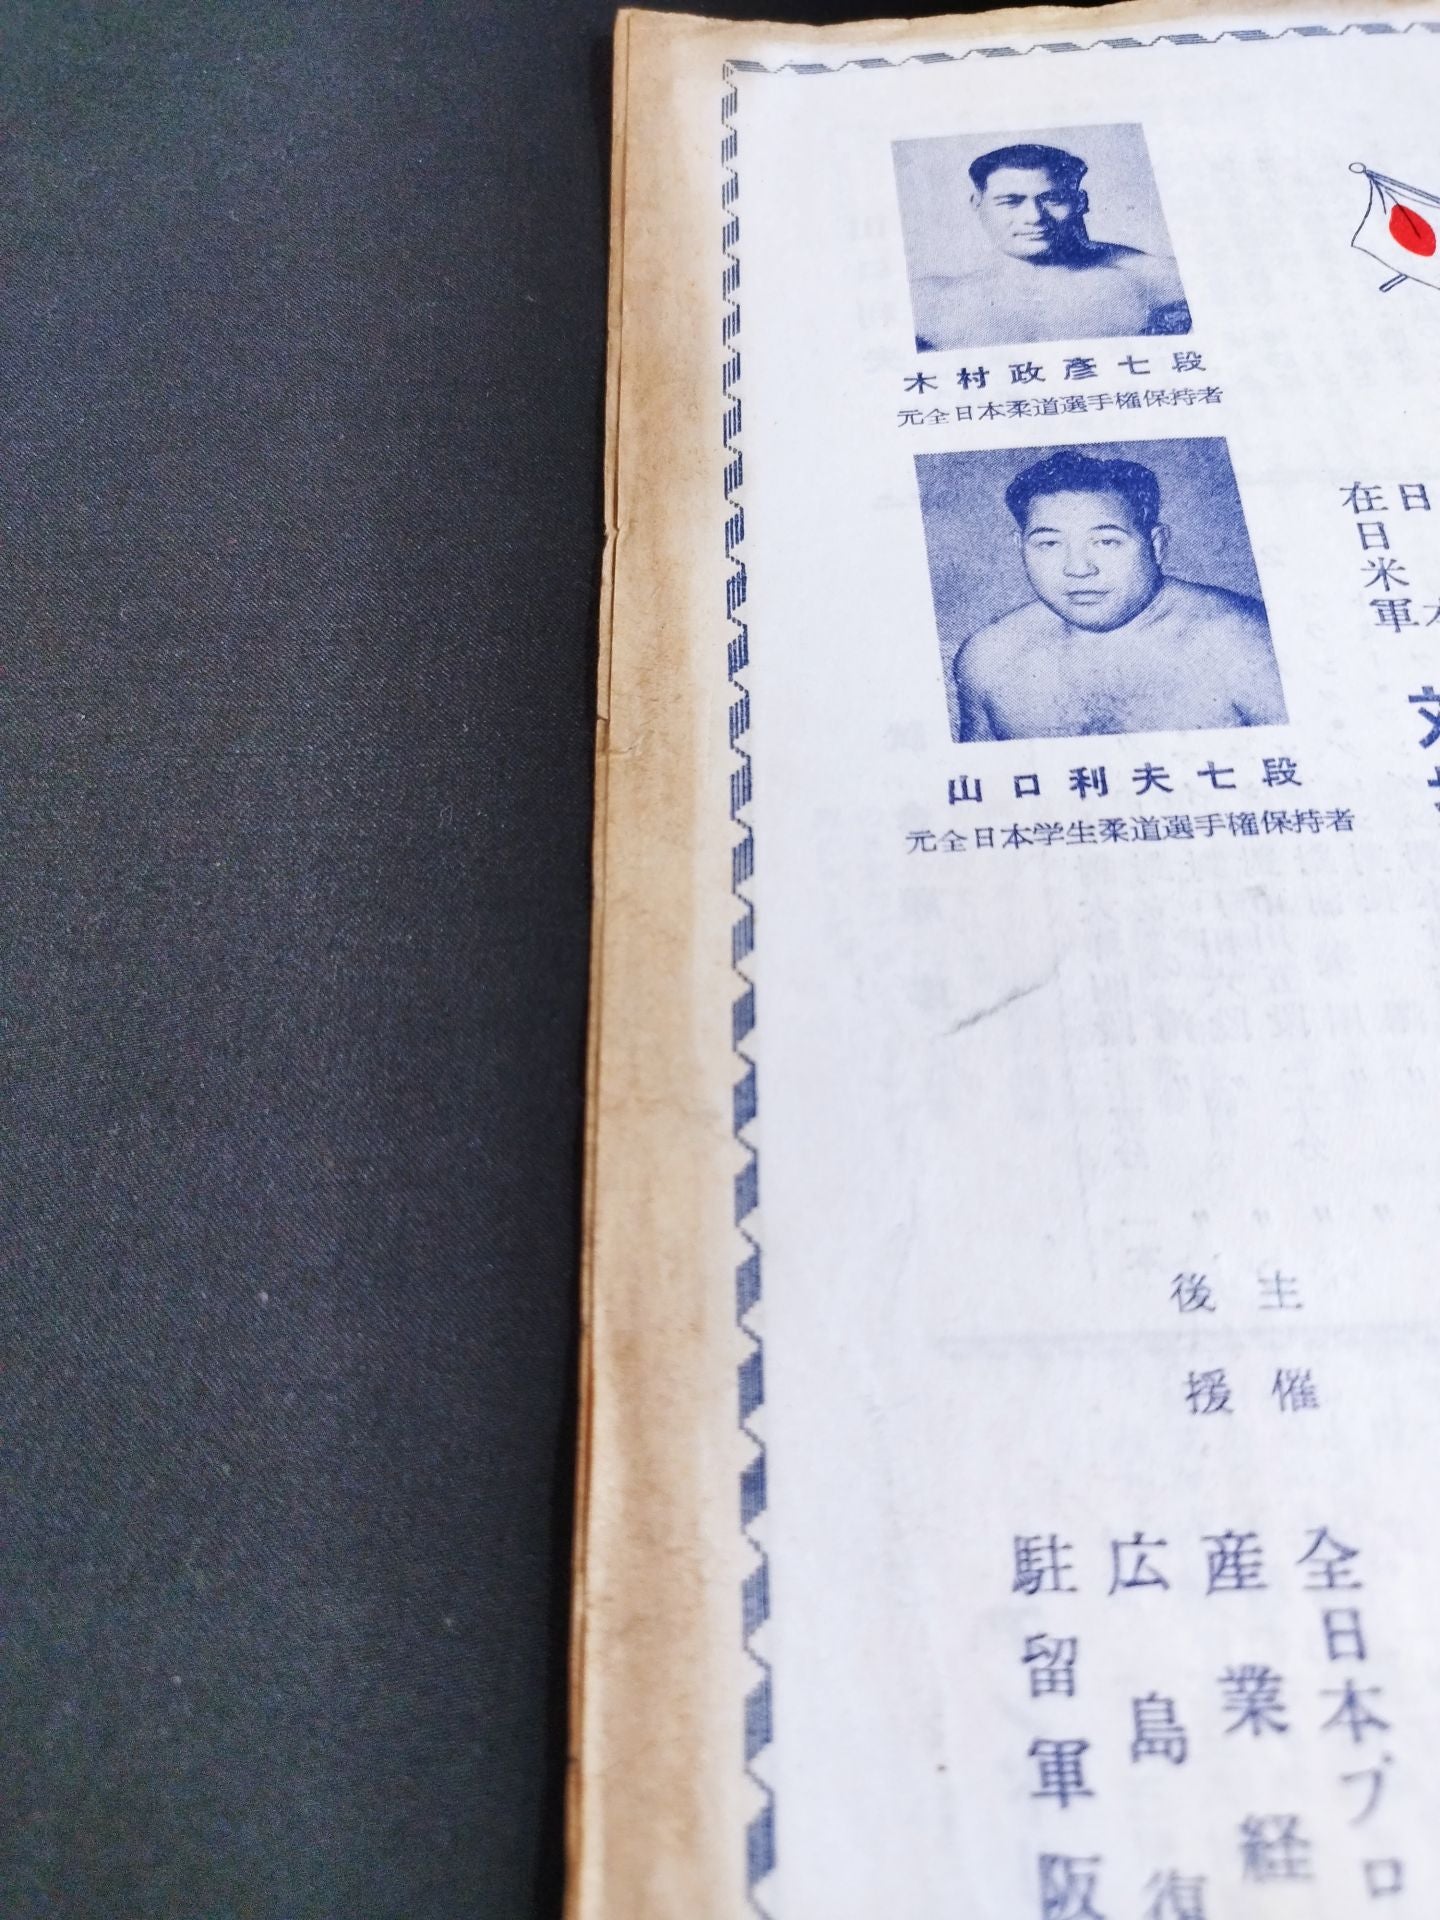 木村政彦七段
元全日本柔道選手権保持者
山口利夫七段
元全日本学生柔道選手権保持者
日
在日米軍
対
主催
後援
全日本プロ
産業経
広島復
駐留軍阪